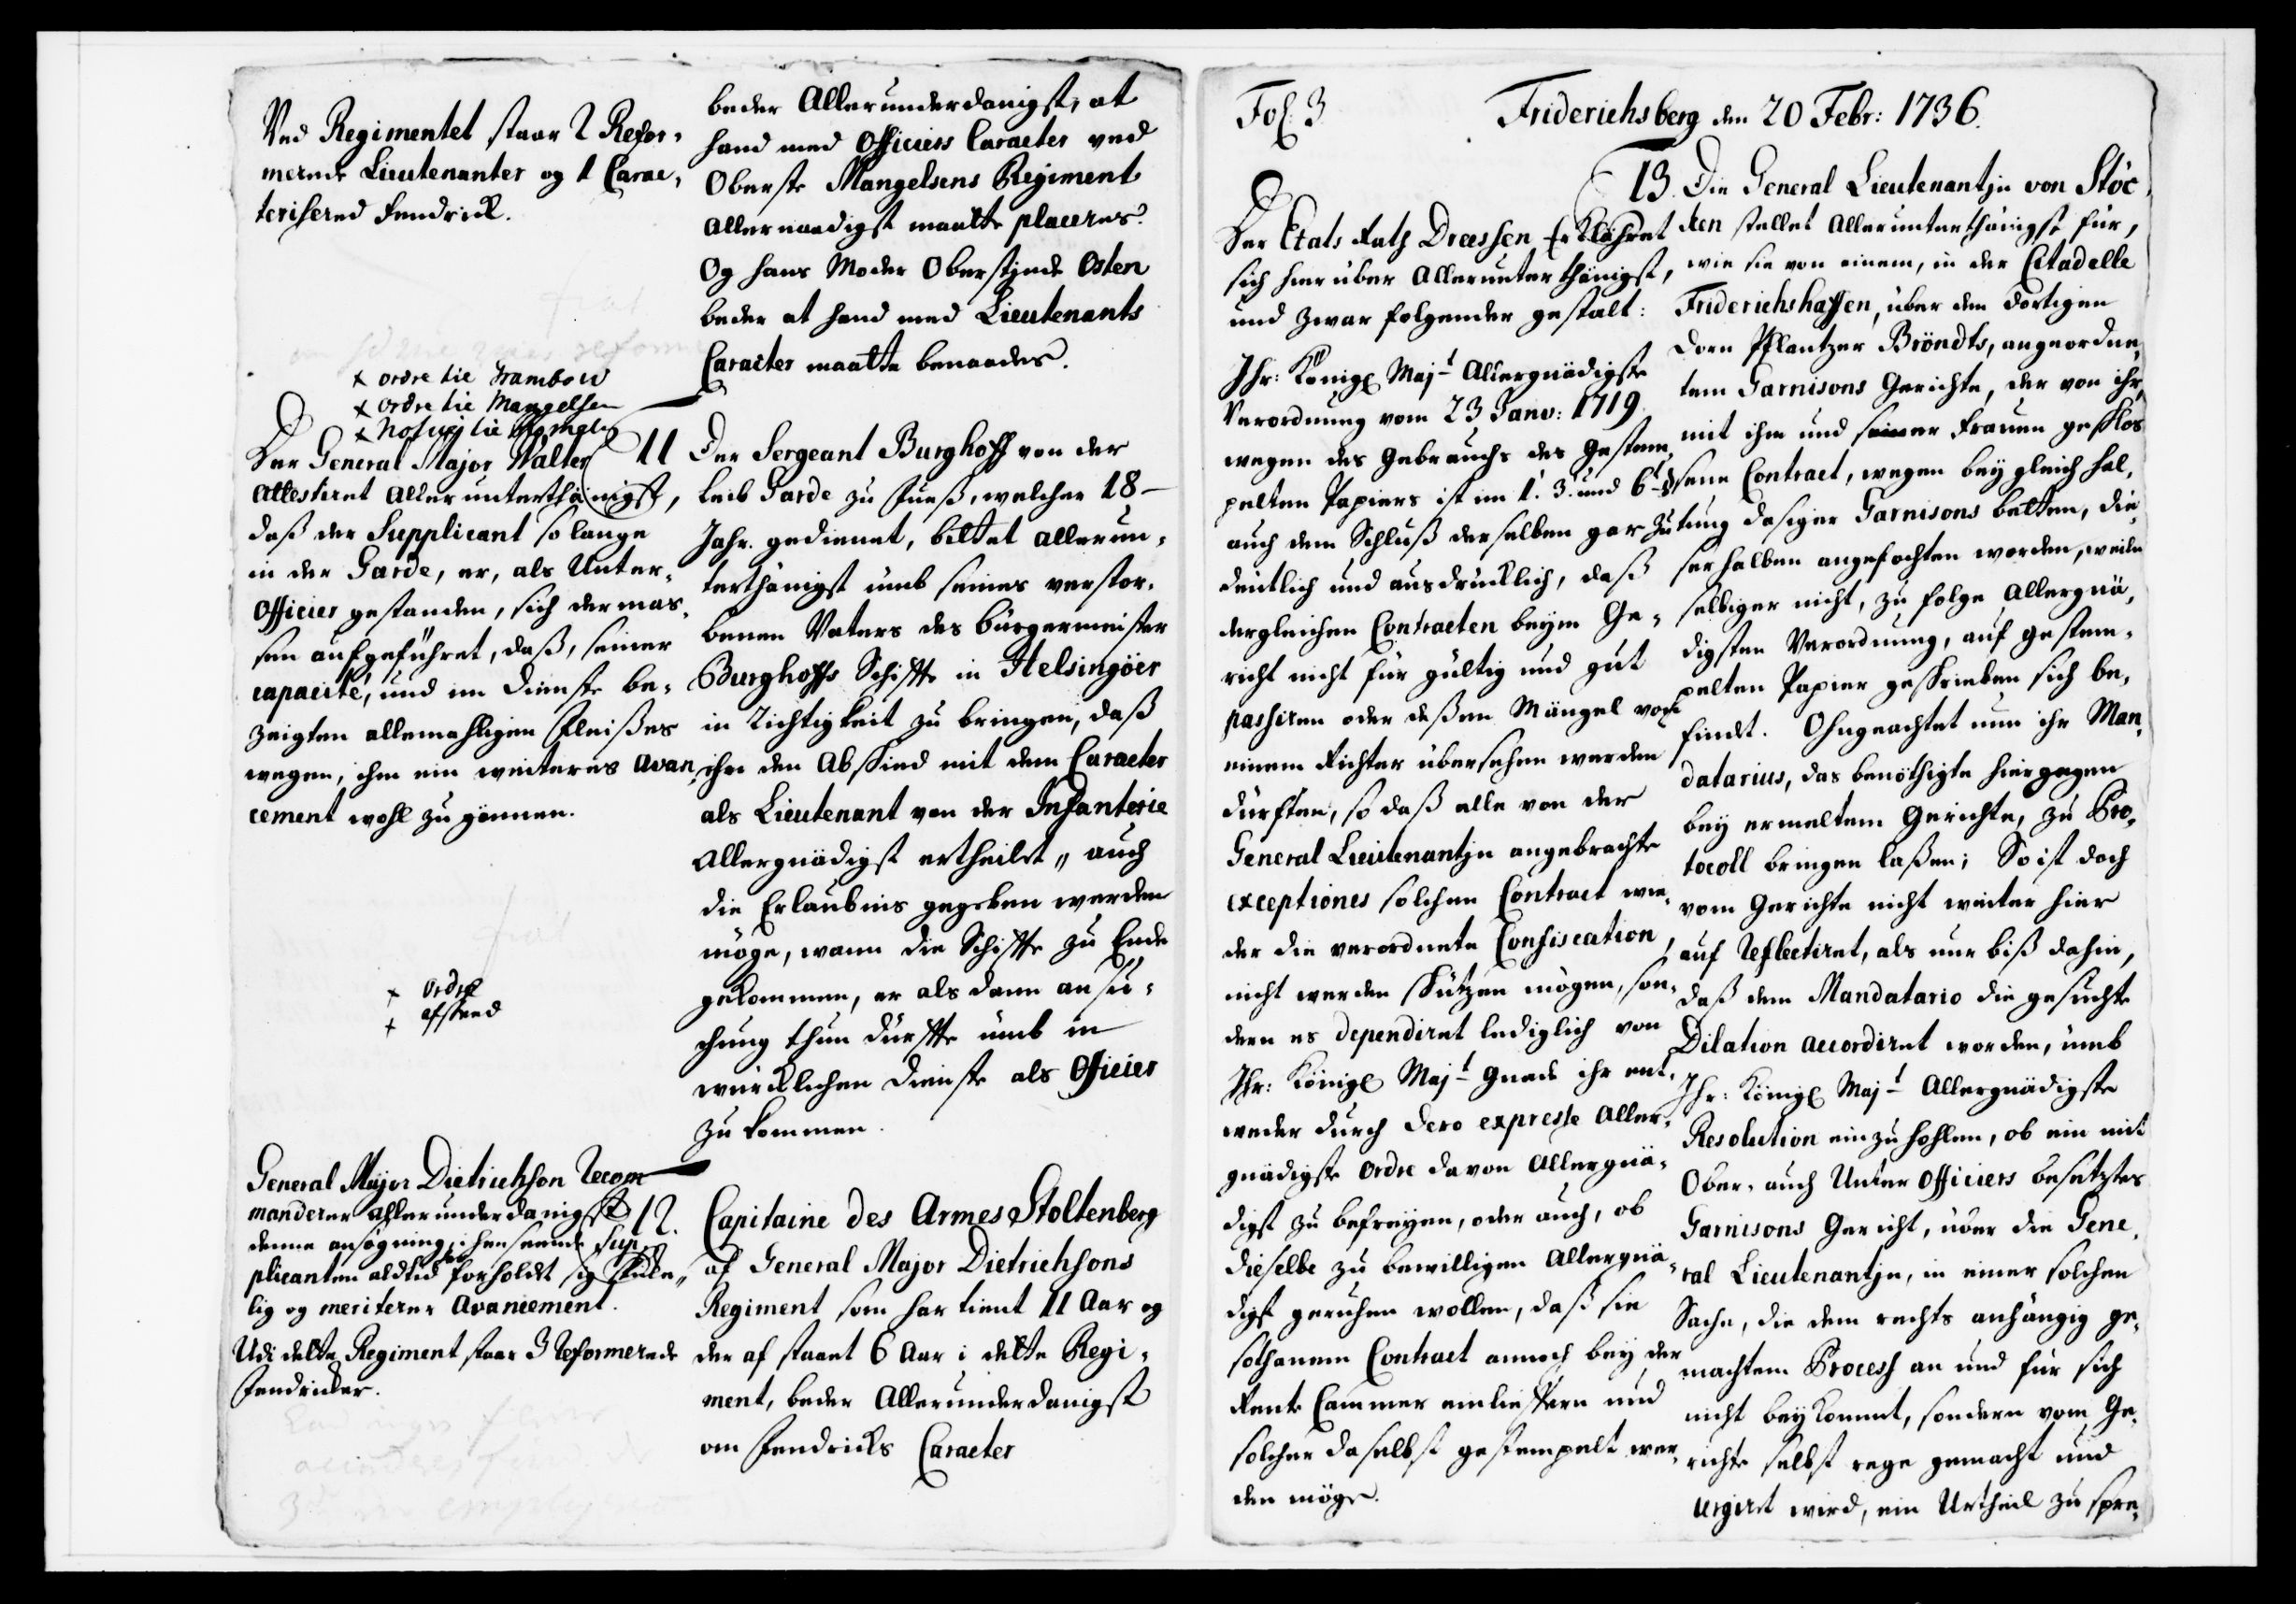 Ved Regimentet staar 2 Refor-
merede Lieutenanter og 1 Carac-
teriseret Fendrick.
x ordre til Trambow
x ordre til Mangelsen
Der General Major Walter
Attestiret allerunterthänigst,
daß der Supplicant so lange
in der Garde, er, als Unter-
Officier gestanden, sich dermas-
sen aufgeführet, daß, seiner
capacité, und im Dienste be-
zeigten allemahligen Fleißes
wegen, ihm ein weiteres Avan-
cement wohl zu gönnen.
x ordre
x afskeed
General Major Dietrichson Recom-
manderer allerunderdanigst
denne ansøgning, i henseende Sup-
plicanten altid har forholdt sig skike-
lig og meriterer Avancement.
Udi dette Regiment staar 3 Reformerede
Fendricker.
beder Allerunderdanigst, at
hand med Officiers Caracter ved
Oberste Mangelsens Regiment
Allernaadigst maatte placeres.
Og hans Moder Oberstinde Osten
beder at hand med Lieutenants
Caracter maatte benaades.
11 Der Sergeant Burghoff von der
Leib Garde zu Fueß, welcher 18
Jahr gedienet, bittet allerun-
terthänigst umb seines verstor-
benen Vaters des Bürgermeister
Burghoffs Schiffte in Helsingöer
in Richtigkeit zu bringen, daß
ihm den Abschied mit dem Caracter
als Lieutenant von der Infanterie
Allergnädigst ertheilet, auch
die Erlaubnis gegeben werden
möge, wann die Schiffte zu Ende
gekommen, er als dann ansu-
chung thun dürffte umb in
würcklichen Dienste als Officier
zu kommen.
12. Capitaine des Armes Stoltenberg
af General Major Dietrichsons
Regiment som har tient 11 Aar og
der af staaet 6 Aar i dette Regi-
ment, beder Allerunderdanigst
om Fendricks Caracter
Fol. 3. Friderichsberg den 20 Febr: 1736.
Der Etats Rath Dreessen Erklähret
sich hierüber Allerunterthänigst,
und zwar folgender gestalt:
Ihr: Königl Majt Allergnädigste
Verordnung vom 23 Janv: 1719
wegen des Gebrauchs des Gestem-
pelten Papiers ist im 1. 3. und 6t §
auch dem Schluß derselben gar zu
deütlich und ausdrücklich, daß
dergleichen Contracten beym Ge-
richt nicht für gültig und gut
passiren oder deßen Mängel von
einem Richter übersehen werden
dürfften, so daß alle von der
General Lieutenantjn angebrachte
exceptiones solchen Contract wie-
der die verordnete Confiscation,
nicht werden schützen mögen, son-
dern es dependiret lediglich von
Ihr: Königl Majt Gnade ihr ent-
weder durch dero expresse Aller-
gnädigste ordre davon Allergnä-
digst zu befreyen, oder auch, ob
dieselbe zu bewilligen Allergnä-
digst geruhen wollen, daß sie
sothanem Contract annoch bey der
Rente Cammer einlieffern und
solcher daselbst gestempelt wer-
den möge.
13. Die General Lieutenantjn von Stöc-
ken stellet Allerunterthänigst für,
wie sie von einem, in der Citadelle
Friderichshaffen, über den dortigen
Dorn Pflantzer Bröndts, angeordne-
tem Garnisons Gerichte, der von ihr,
mit ihm und seiner Frauen geschlos-
senen Contract, wegen bey gleich hal-
tung dasiger Garnisons betten, die-
serhalben angefochten worden, weilen
selbiger nicht, zu folge Allergnä-
digsten Verordnung, auf gestem-
pelten Papier geschrieben sich be-
findet. Ohngeachtet nun ihr Man-
datarius, das benöthigte hiergegen
bey ermeltem Gerichte, zu Pro-
tocoll bringen laßen; So ist doch
vom Gerichte nicht weiter hier
auf Reflectiret, als nur biß dahin,
daß dem Mandatario die gesuchte
Dilation accordiret worden, umb
Ihr: Königl Majt Allergnädigste
Resolution einzuhohlen, ob ein mit
Ober- auch Unter Officiers besetztes
Garnisons Gericht, über die Gene-
ral Lieutenantjn, in einer solchen
Sache, die dem rechts anhängig ge-
machtem Process an und für sich
nicht beykommt, sondern vom Ge-
richte selbst rege gemacht und
urgiret wird, ein Urtheil zu spre-